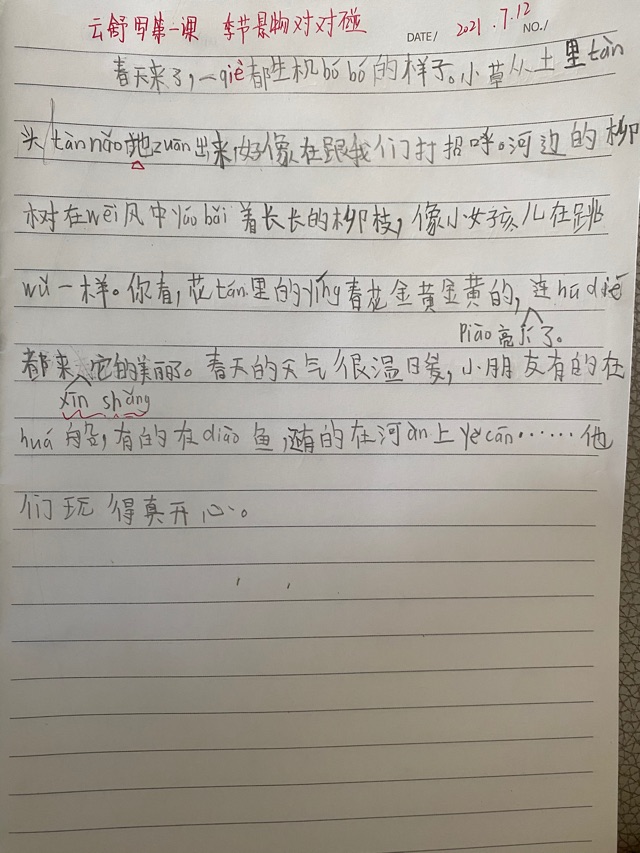 云舒写第一课 季节景物对对碰 DATE/ 2021.7.12 NO./
春天来了,一qiè都生机bó bó的样子。小草从土里tàn
头tàn nǎo地zuān出来,好像在跟我们打招呼。河边的柳
树在wēi风中yáo bǎi着长长的柳枝,像小女孩儿在跳
wǔ一样。你看,花tán里的yíng春花金黄金黄的,连hú dié
piào亮极了。
都来它的美丽。春天的天气很温日爰,小朋友有的在
xīn shǎng
huá船,有的在diào鱼,还有的在河àn上yě cān……他
们玩得真开心。